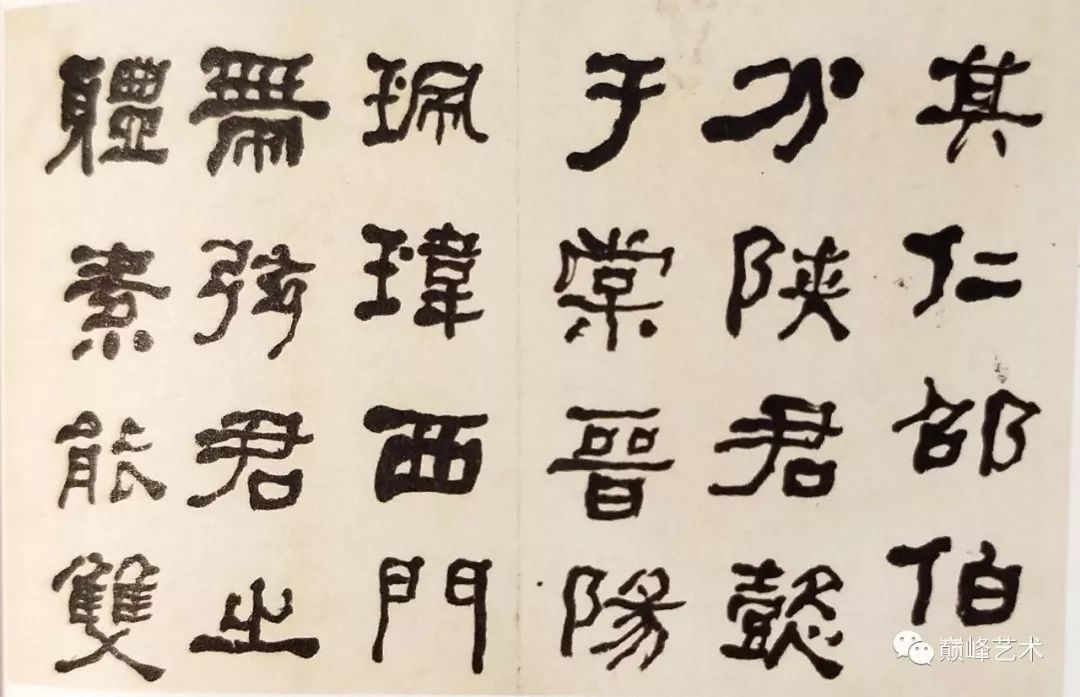 其仁邵伯
分陝君懿
于棠晉陽
珮瑋西門
帶弦君之
體素能雙
巅峰艺术